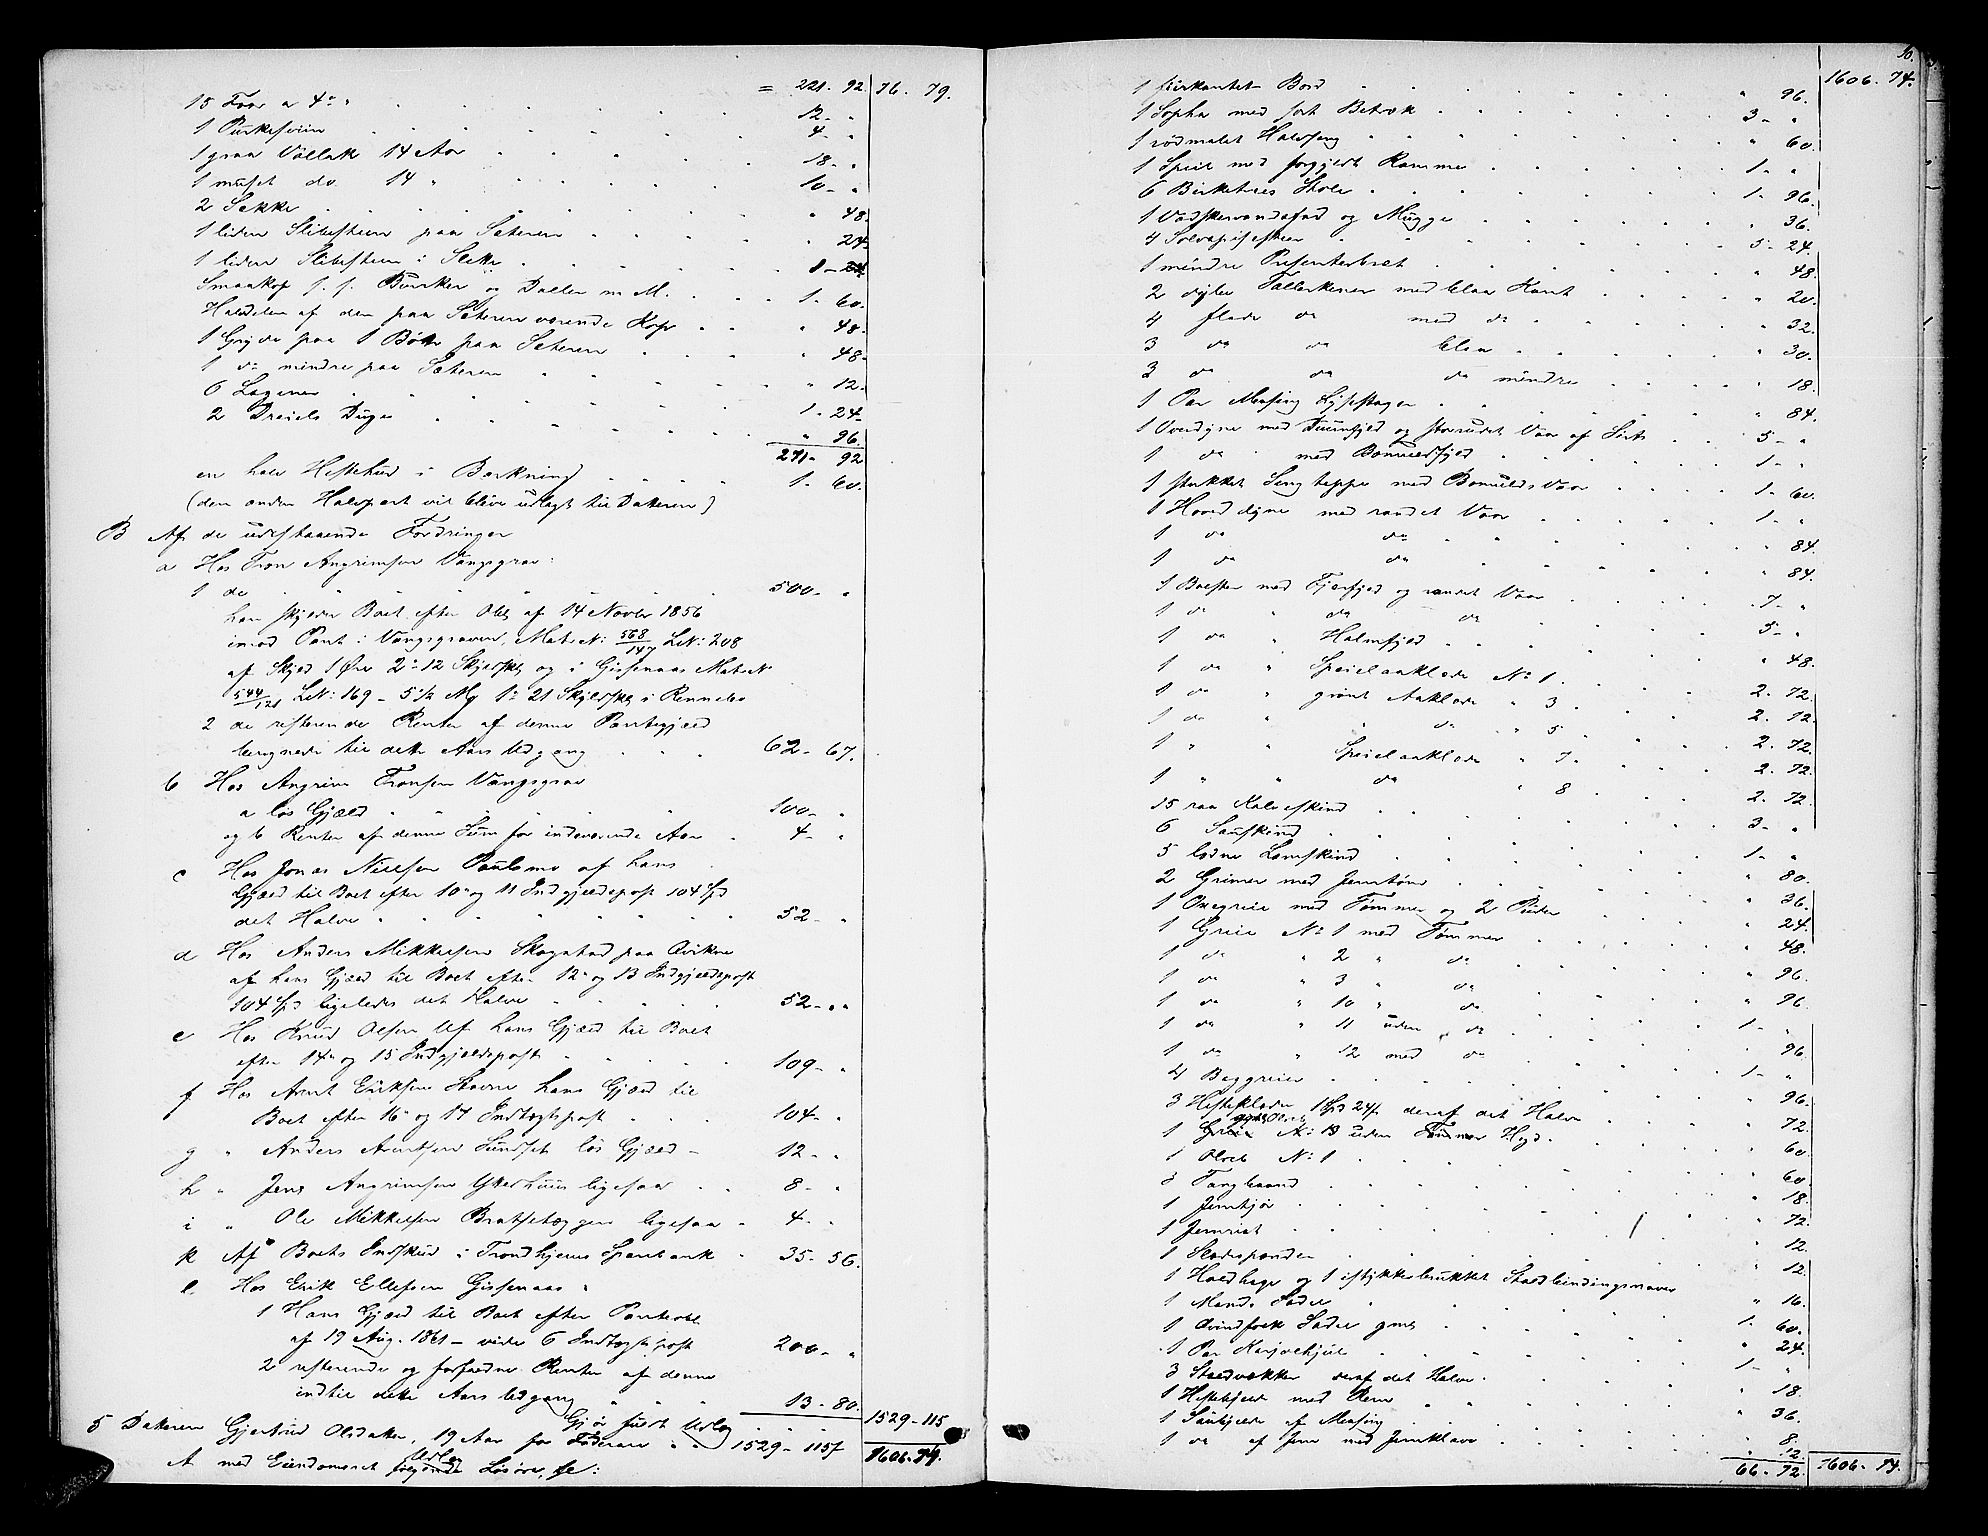 = 221. 92. 76. 79.
15 Faar a 4 " 12 - "
1 Purkesviin 4 - "
1 graa Vallak 14 Aar 18 - "
1 muset do 14 " 10 - "
2 Sække " 48 -
1 liden Slibesteen paa Sæteren " 24 -
1 liden Slibesteen i
Smaakop s. s. Butker og Daller m M. 1 - 60.
Halvdelen af den paa Sæteren værende Kop " 48 -
1 Gryde paa 1 Bøtte paa Sæteren " 48 -
1 do mindre paa Sæteren " 12.
6 Lagener 1 - 24 -
2 Dreiels Duge " 96.
271 - 92
en halv Hestehud i Barkning 1 - 60.
(den anden Halvpart vil blive udlagt til Datteren)
B Af de udestaaende Fordringer
a Hos Tron Angrimsen Vangsgrav:
1 de 500 - "
han skylder Boet efter Obl. af 14 Novbr 1856
imod Pant i Vangsgraven, Mats N: 568/147 L N: 208
af Skyld 1 Ort 2 - 12 Skylsk og i Gissenaas Mats N
544/121 L N: 169 - 5 1/2 Mg 1 - 21 Skylsk i Rennebo
2 de resterende Renter af denne Pantegjæld
beregnede til dette Aars Udgang 62 - 67.
b Hos Angrim Tronsen Vangsgrav
a løs Gjæld 100 - "
og b Renter af denne Sum for indeværende Aar 4 - "
c Hos Jonas Nielsen Paulsmo af hans
Gjæld til Boet efter 10 og 11 Indgjældspost 104 Spd
det Halve 52 - "
d Hos Anders Mikkelsen Skogstad paa Qvikne
af hans Gjæld til Boet efter 12 og 13 Indgjældspost
104 Spd ligeledes det Halve 52 - "
e Hos Knud Olsen Uf hans Gjæld til Boet
efter 14 og 15 Indgjældspost 109 - "
f Hos Arnt Eriksen Stavne hans Gjæld til
Boet efter 16 og 17 Indtægtspost 104 - "
g " Anders Arntsen Sundset løs Gjæld - 12 - "
h " Jens Angrimsen Ytterhuus ligesaa 8 - "
i " Ole Mikkelsen Bratsetæggen ligesaa 4 - "
k Af Boets Indskud i Trondhjems Sparebank 35 - 56.
l Hos Erik Ellefsen Gissenaas
1 Hans Gjæld til Boet efter Panteobl
af 19 Aug. 1861 - vide 6 Indtægtspost 200 - "
2 resterende og forfaldne Renter af denne
indtil dette Aars Udgang 13 - 80. 1529 - 115
Gjør fuldt Udlæg
5 Datteren Gjertrud Olsdatter, 19 Aar for Faderarv 1529 - 115 1606. 74.
A med Eiendomsret følgende Løsøre, :
1606. 74.
1 fiirkantet Bord " 96.
1 Sopha med sort Betræk 3 - "
1 rødmalet Halvseng " 60.
1 Speil med forgyldt Ramme 1 - "
6 Birketræes Stole 1 - 96.
1 Vaskevandsfad og Mugge " 36.
4 Sølvspiseskeer 5 - 24.
1 mindre Presenterbræt " 48.
2 dybe Tallerkener med blaa Kant " 20.
4 flade do med do " 32.
3 do do blaa " 30.
3 do do do mindre " 18.
1 Par Messing Lysestager " 84.
1 Overdyne med Duunfyld og storrudet Vaar af Sirts 5 - "
1 do med Bomuldsfyld 1 - "
1 stukket Sengteppe med Bomulds Vaar 1 - 60.
1 Hoveddyne med randet Vaar 1 - "
1 do do " 84.
1 do do " 84.
1 Bolster med Fjærfyld og randet Vaar 7 - "
1 do " do do 5 - "
1 do " Halmfyld " 48.
1 do " Speilaaklæde No 1 2. 72.
1 do " grønt Aaklæde " 3 2. 12.
1 do " " do " 5 2. 72.
1 " " Speilaaklæde " 7 2. 72.
1 " " do " 8 2. 72.
15 raa Kalveskind 3 - "
6 Saueskind 1 - "
5 lodne Lamskind " 80.
2 Grimer med Jerntøm " 36.
1 Oxegreie med Tømmer og 2 Puder " 24.
1 Greie No 1 med Tømmer " 48.
1 do " 2 " do " 96.
1 do " 3 " do " 96.
1 do " 10 " do 1 - "
1 do " 11 uden do " 96.
1 do " 12 med do 1 - "
4 Baggreier " 96.
3 Hesteklæder 1 Spd 24 s deraf det Halve " 72.
1 No 13 uden Tømmer " 60.
1 No 1 " 60.
3 " 18.
1 " 72.
1 Jernrist " 12.
1 " 12.
1 og 1 istykkebrukket
1 Mands Sadel " 16.
1 Qvindfolk Sadel gml 1 - 60.
1 Par Karjolehjul " 24.
3 deraf det Halve 1 - "
1 Hestebjelde med Rem " 18.
1 Saubjelde af Messing " 36.
1 do af Jern med Jernklave " 8.
" 12.
66. 72. 1606. 74.